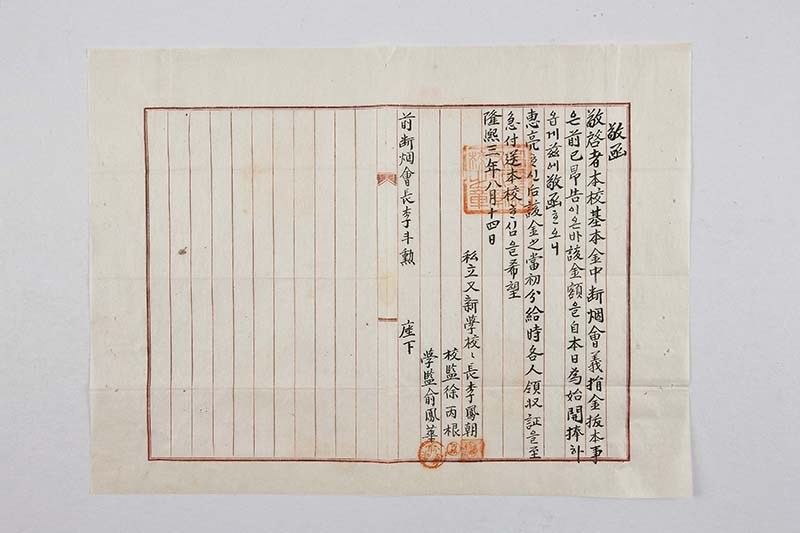 敬函
敬啓者本校基本金中断烟會義捐金拔本事
은前已昂告이은바該金額을自本日為始開捧하
옵게玆에敬函호오니
惠亮호신后該金之當初分給時各人領収証을至
急付送本校호심을希望
隆熙三年八月十四日
私立又新學校〻長李鳳朝
校監徐丙根
学監俞鳳華
前断烟會長李斗勲 座下